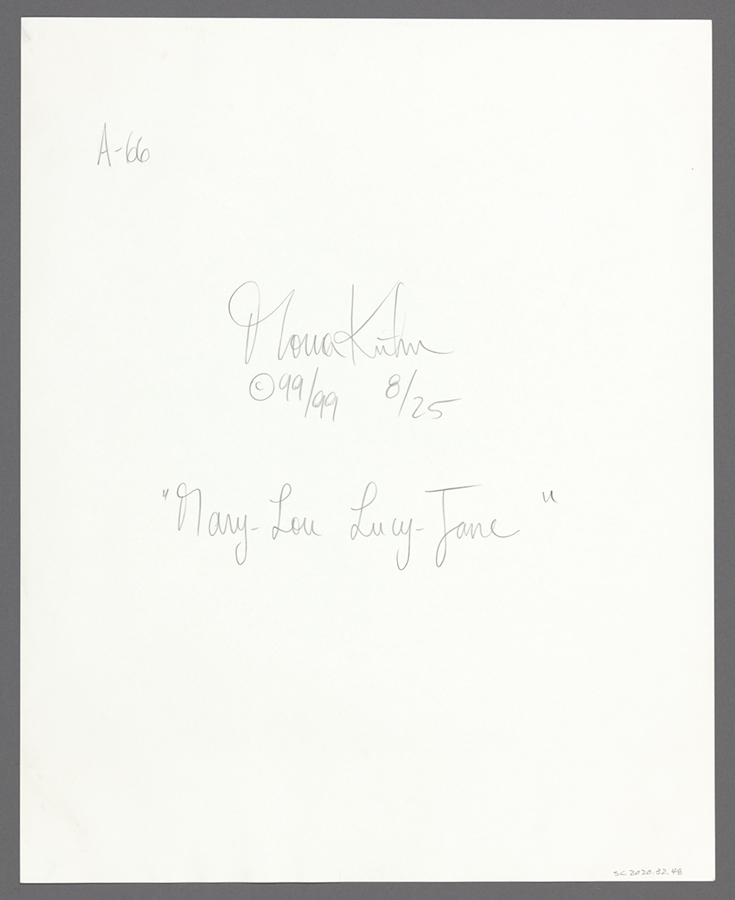 A-66
Mona Kuhn
© 99/99 8/25
"Mary-Lou Lucy-Jane"
SC 2020.32.48